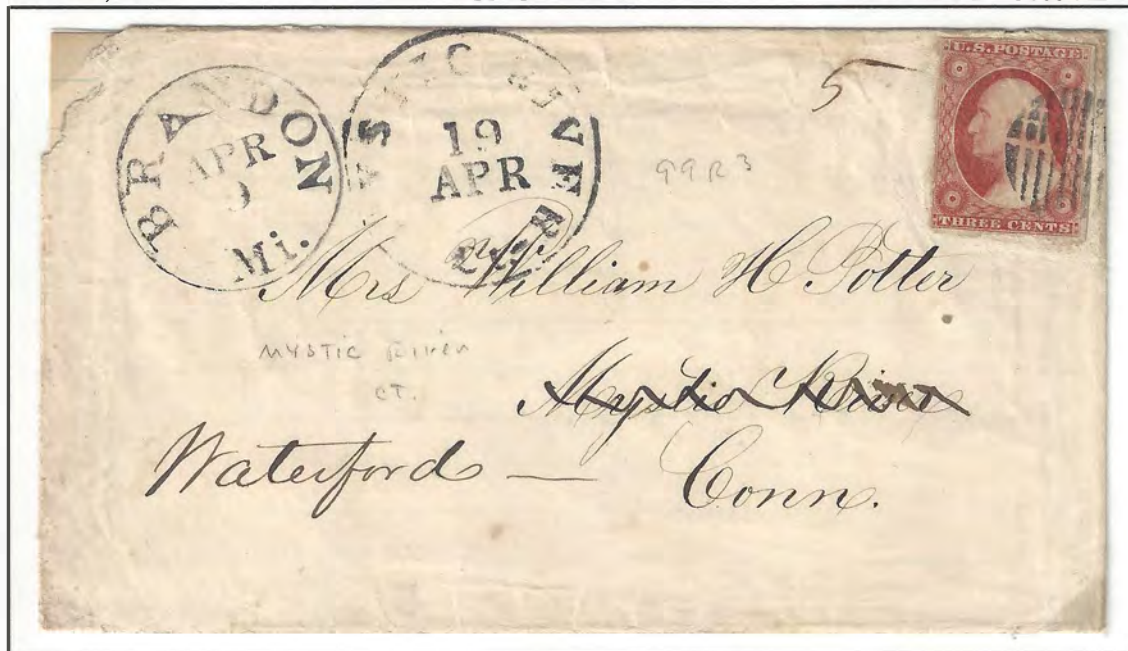 BRANDON
APR
9
Mi.
MYSTIC RIVER
19
APR
5
U.S. POSTAGE
THREE CENTS
99R3
Mrs William H. Potter
MYSTIC RIVER
CT.
Mystic River
Waterford — Conn.